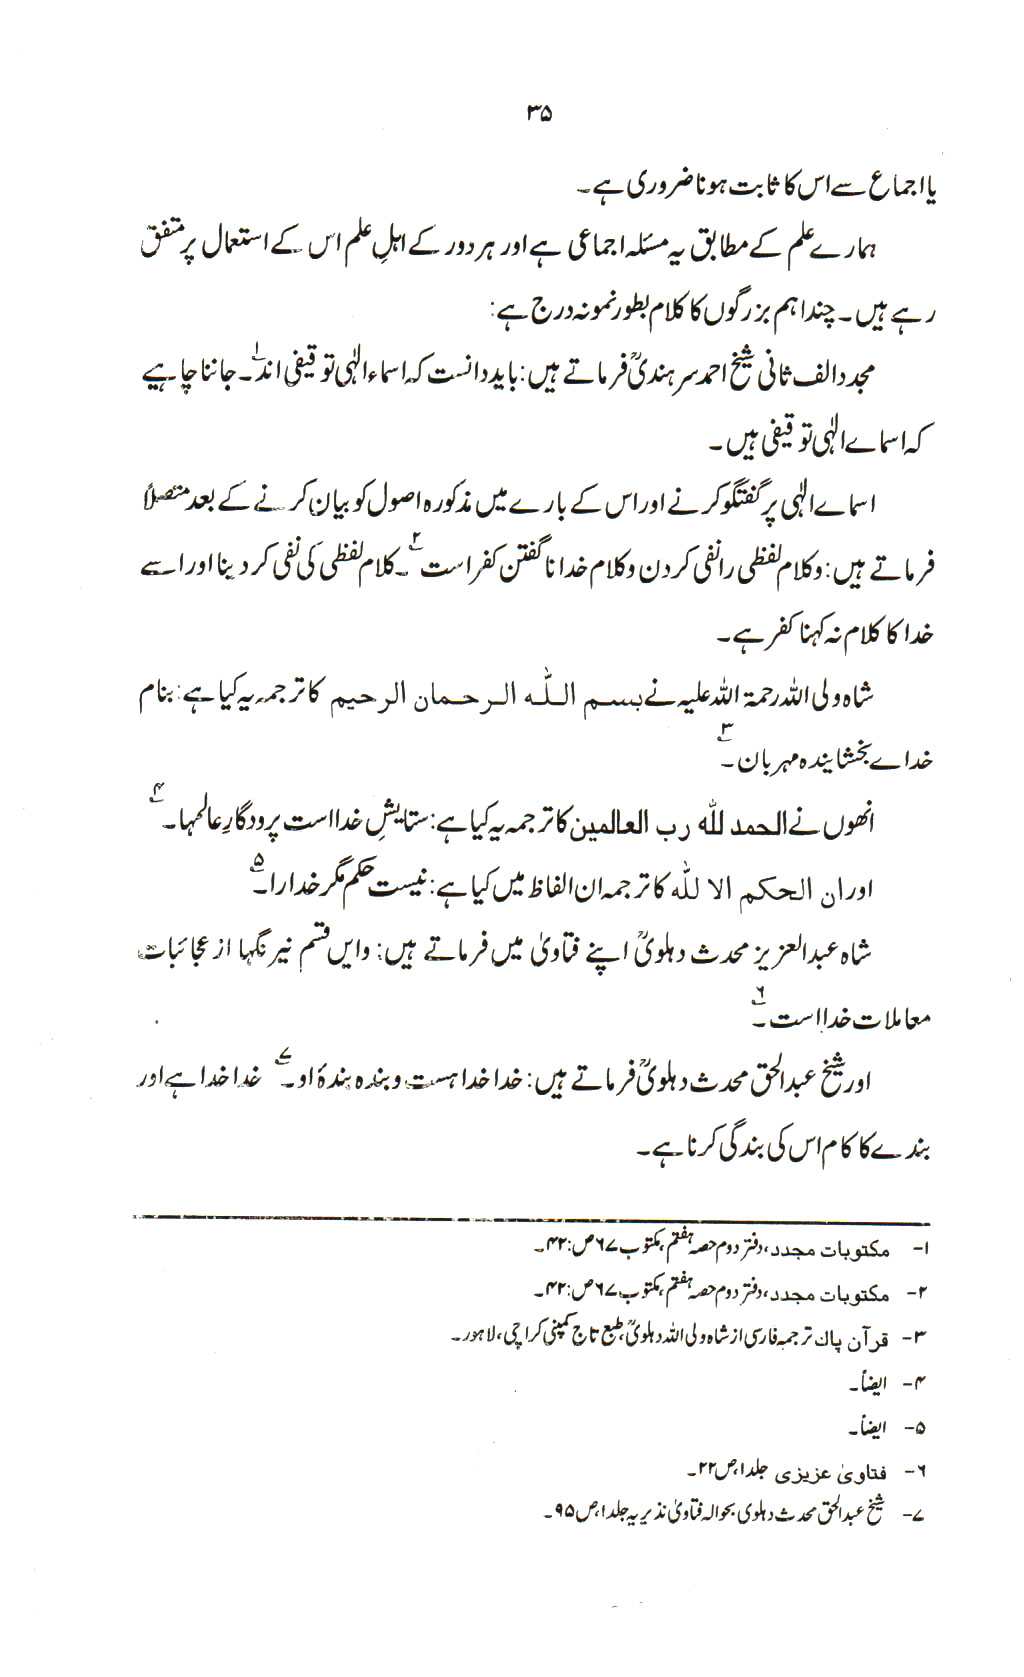 ۳۵
یا اجماع سے اس کا ثابت ہونا ضروری ہے۔
ہمارے علم کے مطابق یہ مسئلہ اجماعی ہے اور ہر دور کے اہلِ علم اس کے استعمال پر متفق
رہے ہیں۔ چند اہم بزرگوں کا کلام بطور نمونہ درج ہے:
مجدد الف ثانی شیخ احمد سرہندیؒ فرماتے ہیں: باید دانست کہ اسماء الٰہی توقیفی اند۱۔ جاننا چاہیے
کہ اسماے الٰہی توقیفی ہیں۔
اسماے الٰہی پر گفتگو کرنے اور اس کے بارے میں مذکورہ اصول کو بیان کرنے کے بعد متصلاً
فرماتے ہیں: و کلام لفظی را نفی کردن و کلام خدا نا گفتن کفر است۲۔ کلام لفظی کی نفی کر دینا اور اسے
خدا کا کلام نہ کہنا کفر ہے۔
شاہ ولی اللہ رحمۃ اللہ علیہ نے بسم اللہ الرحمان الرحیم کا ترجمہ یہ کیا ہے: بنام
خداے بخشایندہ مہربان۳۔
انھوں نے الحمد للہ رب العالمین کا ترجمہ یہ کیا ہے: ستایشِ خدا است پرودگارِ عالمہا۔۴
اور ان الحکم الا للہ کا ترجمہ ان الفاظ میں کیا ہے: نیست حکم مگر خدا را۔۵
شاہ عبدالعزیز محدث دہلویؒ اپنے فتاویٰ میں فرماتے ہیں: و ایں قسم نیرنگہا از عجائبات
معاملات خدا است۔۶
اور شیخ عبدالحق محدث دہلویؒ فرماتے ہیں: خدا خدا ہست و بندہ بندۂ او۔۷ خدا خدا ہے اور
بندے کا کام اس کی بندگی کرنا ہے۔
۱- مکتوبات مجدد، دفتر دوم حصہ ہفتم، مکتوب ۶۷ ص: ۴۲۔
۲- مکتوبات مجدد، دفتر دوم حصہ ہفتم، مکتوب ۶۷ ص: ۴۲۔
۳- قرآن پاک ترجمہ فارسی از شاہ ولی اللہ دہلویؒ، طبع تاج کمپنی کراچی، لاہور۔
۴- ایضاً۔
۵- ایضاً۔
۶- فتاویٰ عزیزی جلد ۱، ص ۲۲۔
۷- شیخ عبدالحق محدث دہلوی بحوالہ فتاویٰ نذیریہ جلد ۱، ص ۹۵۔